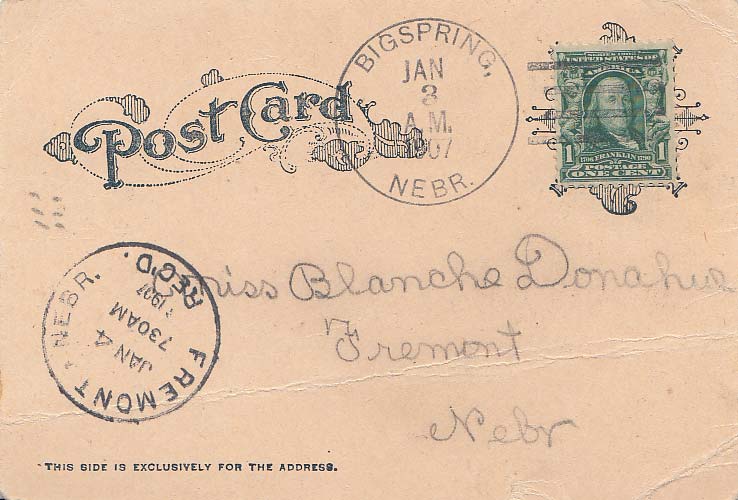 Post Card
BIGSPRING,
JAN
3
A.M.
1907
NEBR.
SERIES 1902
UNITED STATES OF
AMERICA
1 1
1706 FRANKLIN 1790
POSTAGE
ONE CENT
FREMONT NEBR.
JAN 4
730AM
1907
REC'D.
Miss Blanche Donahue
Fremont
Nebr
THIS SIDE IS EXCLUSIVELY FOR THE ADDRESS.